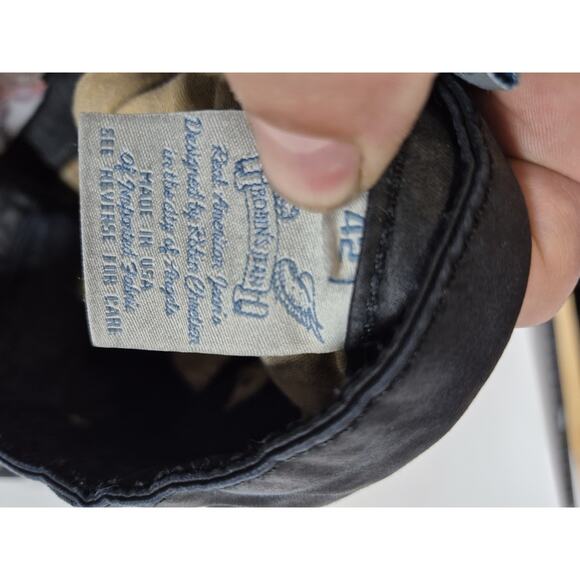 ROBIN'S JEAN
Real American Jeans
Designed by Robin Chretien
in the city of Angels
MADE IN USA
Of Imported Fabric
SEE REVERSE FOR CARE
42